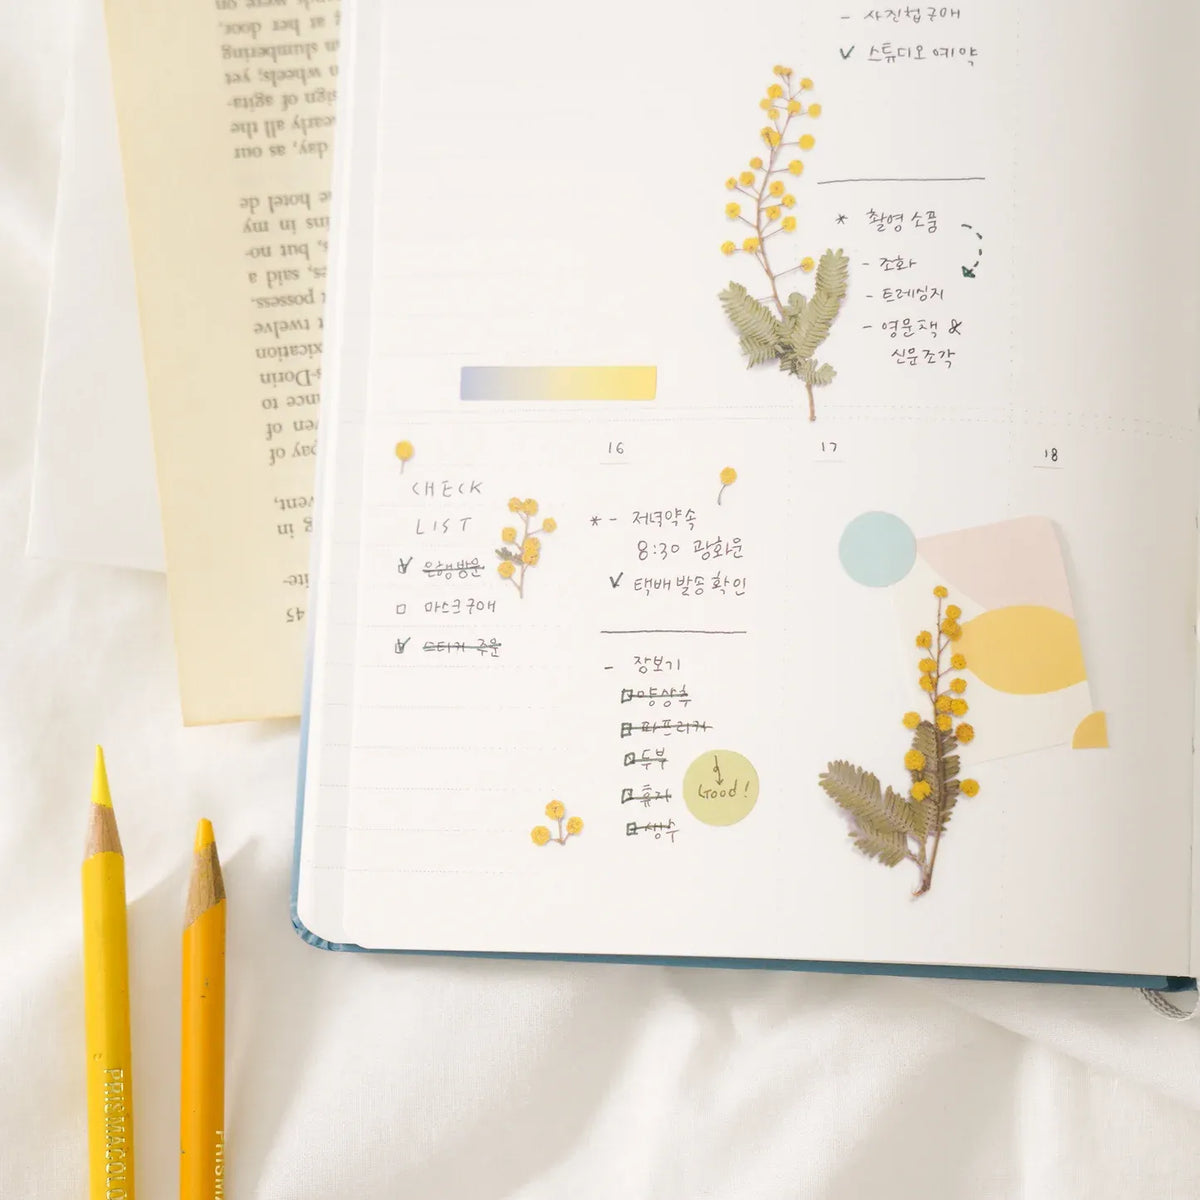 - 사진첩 구매
✓ 스튜디오 예약
* 촬영 소품
- 조화
- 트레싱지
- 영문책 &
신문조각
16
17
18
CHECK
LIST
은행방문
마스크 구매
스티커 주문
* - 저녁약속
8:30 광화문
✓ 택배 발송 확인
- 장보기
양상추
파프리카
두부
휴지
생수
Good!
at her door,
slumbering
wheels; yet
sign of agita-
early all the
day, as our
hotel de
ins in my
, but no-
es, said a
t possess.
t twelve
oxication
s-Dorin
nce to
ven of
pay of
vent,
ing in
ite-
45
PRISMACOLO
PRISMA